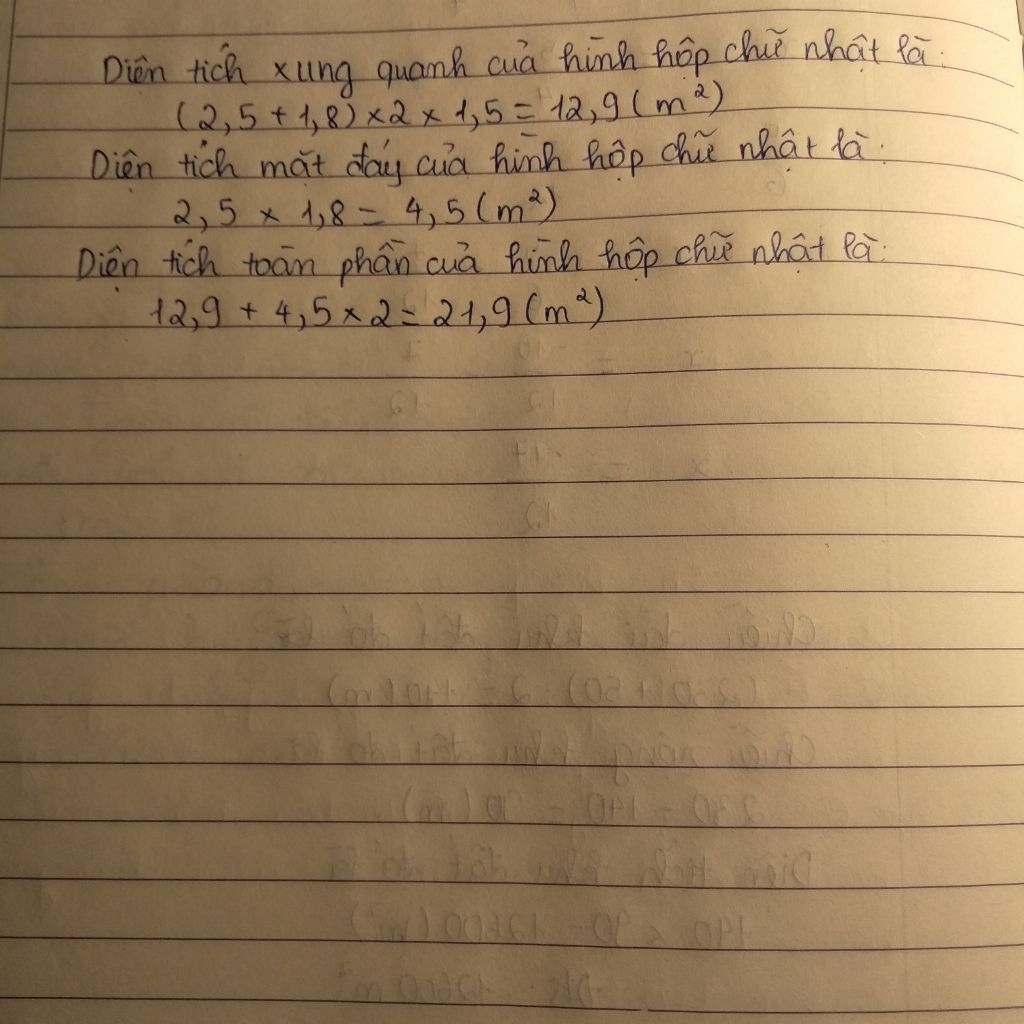 Diện tích xung quanh của hình hộp chữ nhật là:
(2,5 + 1,8) × 2 × 1,5 = 12,9 (m²)
Diện tích mặt đáy của hình hộp chữ nhật là:
2,5 × 1,8 = 4,5 (m²)
Diện tích toàn phần của hình hộp chữ nhật là:
12,9 + 4,5 × 2 = 21,9 (m²)